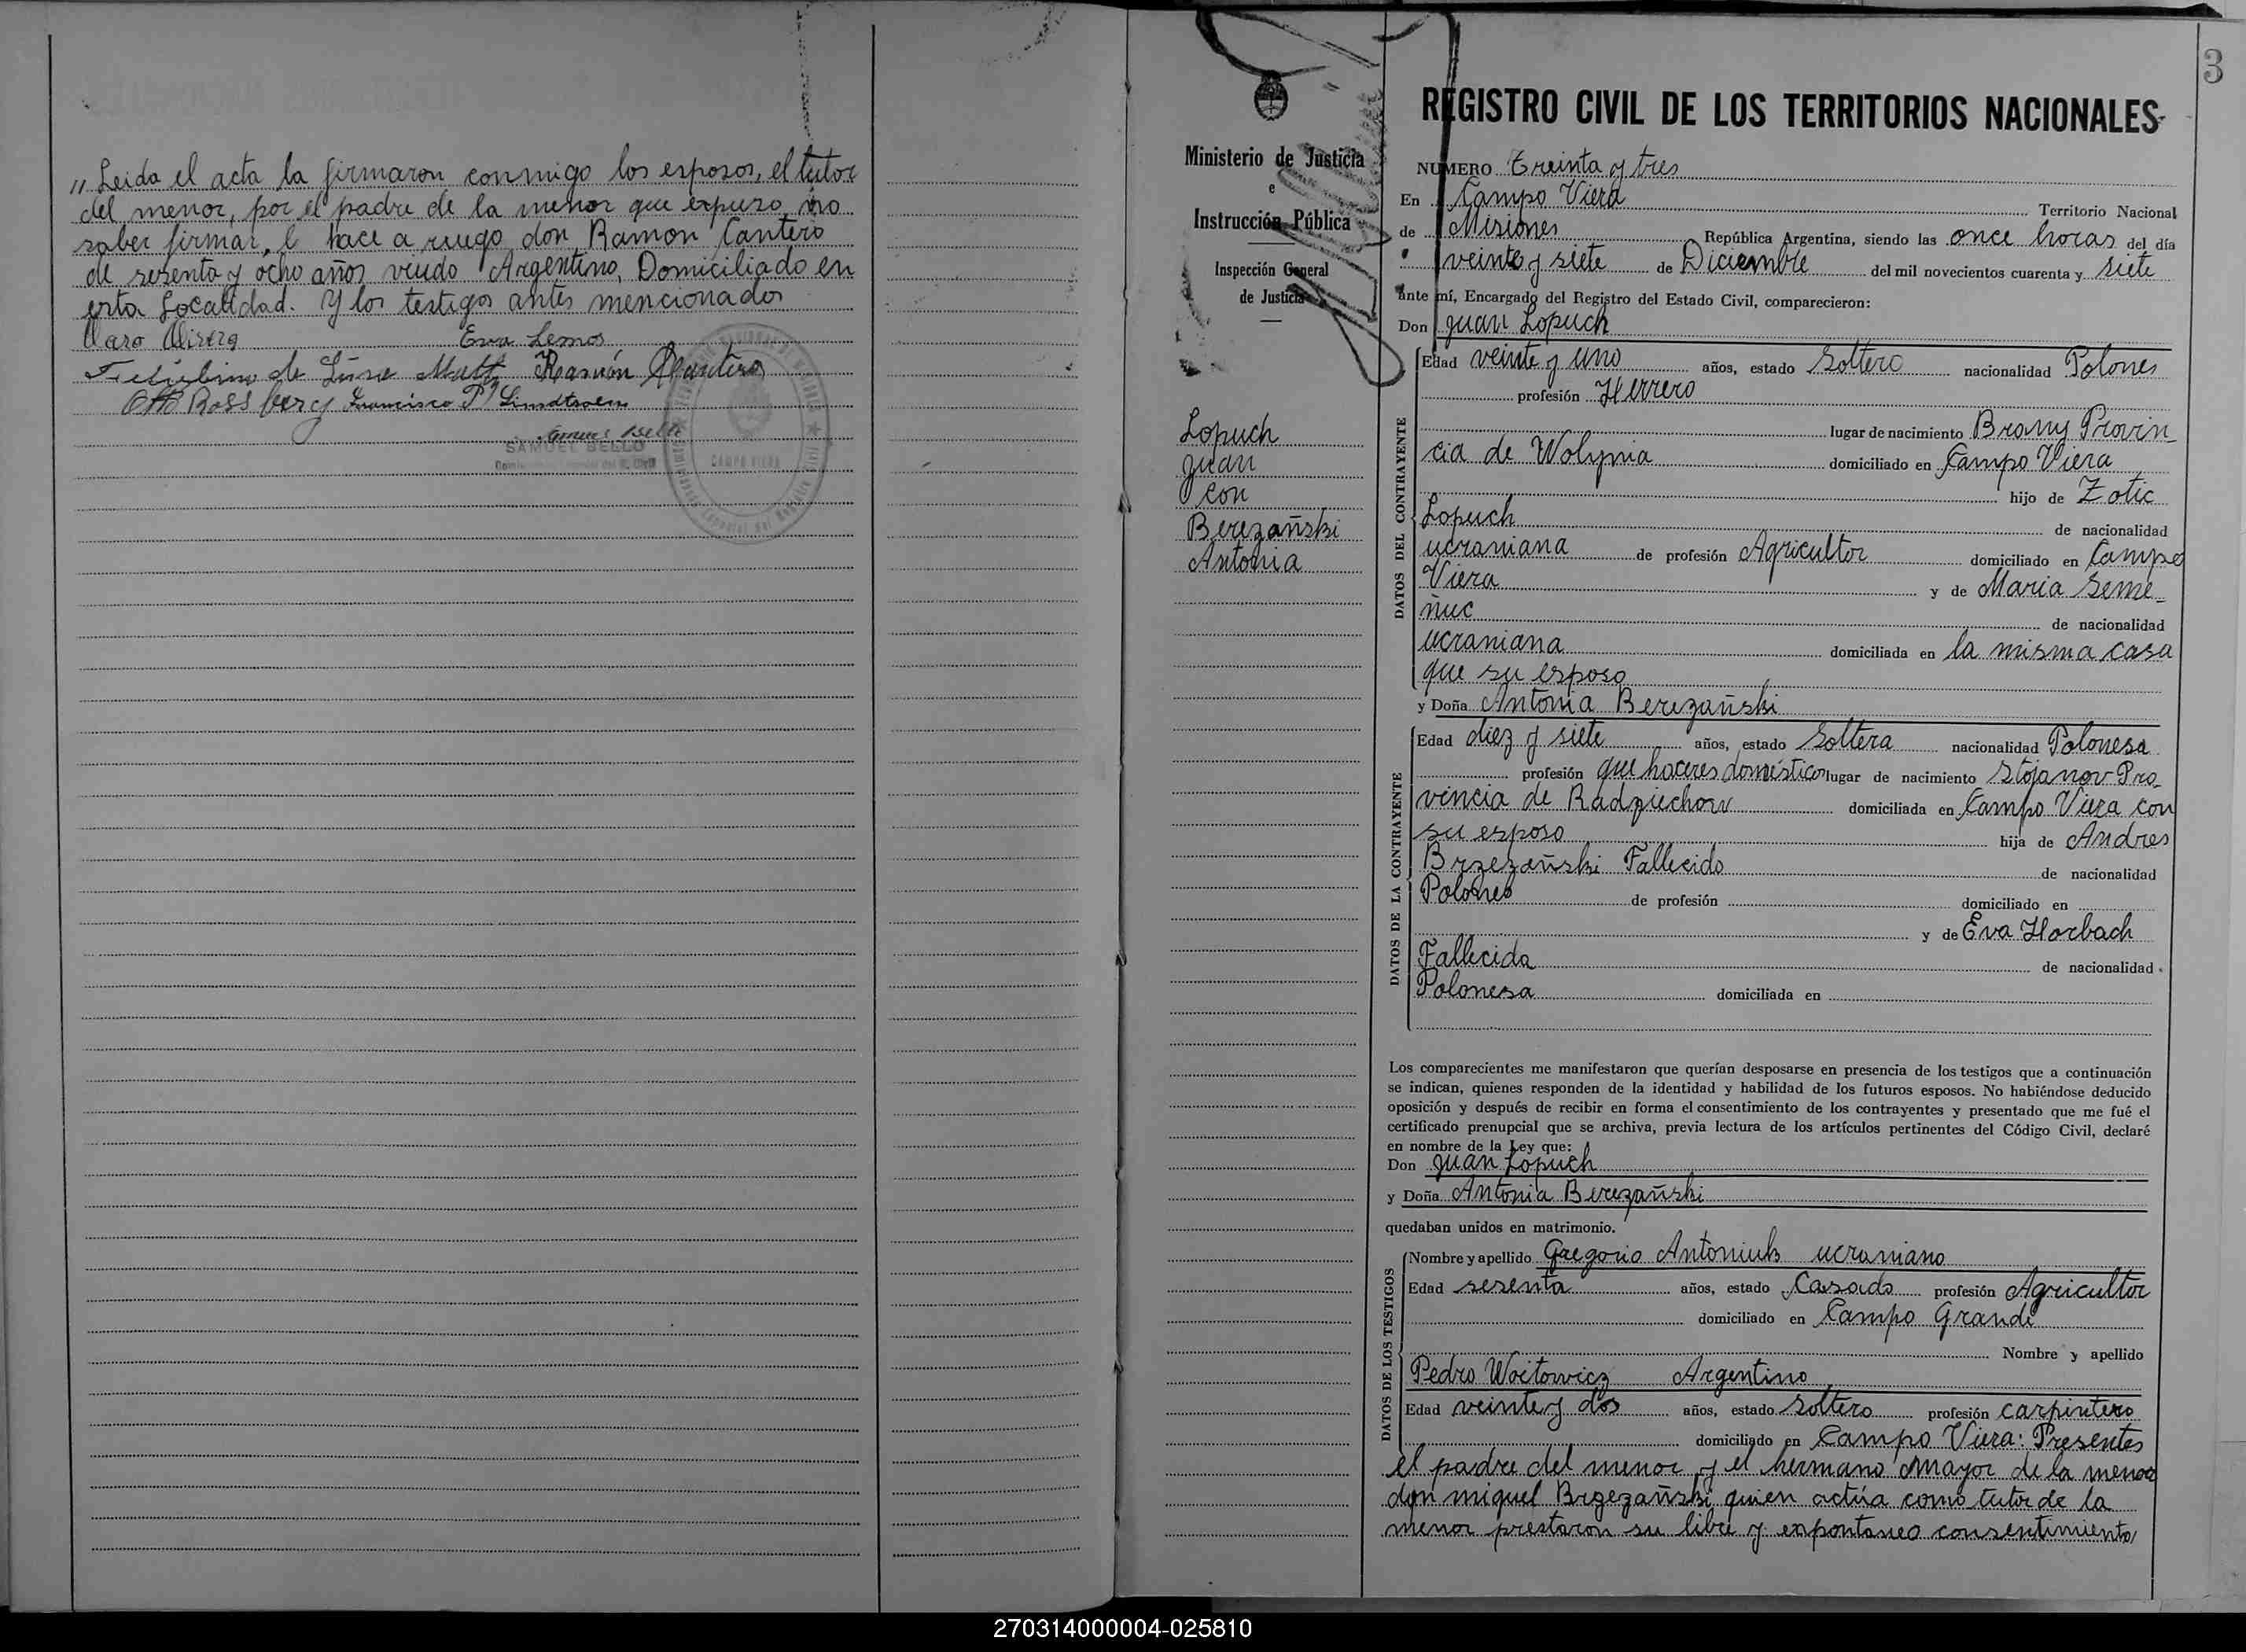 „ Leida el acta la firmaron conmigo los esposos, el tutor
del menor, por el padre de la menor que expuso no
saber firmar, l hace a ruego don Ramon Cantero
de sesenta y ocho años viudo Argentino, Domiciliado en
esta Localidad. Y los testigos antes mencionados
Eva Lemos
de Lima Ramón Cantero
Rossberg Francisco
SAMUEL BELLO
CAMPO VIERA
3
Ministerio de Justicia
e
Instrucción Pública
Inspección General
de Justicia
Lopuch
Juan
con
Berezañski
Antonia
REGISTRO CIVIL DE LOS TERRITORIOS NACIONALES
NUMERO Treinta y tres
En Campo Viera Territorio Nacional
de Misiones República Argentina, siendo las once horas del día
veinte y siete de Diciembre del mil novecientos cuarenta y siete
ante mí, Encargado del Registro del Estado Civil, comparecieron:
Don Juan Lopuch
DATOS DEL CONTRAYENTE
Edad veinte y uno años, estado Soltero nacionalidad Polones
profesión Herrero
lugar de nacimiento Brany Provin_
cia de Wolynia domiciliado en Campo Viera
hijo de Zotic
Lopuch de nacionalidad
ucraniana de profesión Agricultor domiciliado en Campo
Viera y de Maria Seme_
ñuc de nacionalidad
ucraniana domiciliada en la misma casa
que su esposo
y Doña Antonia Berezañski
DATOS DE LA CONTRAYENTE
Edad diez y siete años, estado Soltera nacionalidad Polonesa
profesión que haceres domésticos lugar de nacimiento Stojanov Pro_
vincia de Radziechow domiciliada en Campo Viera con
su esposo hija de Andres
Brzezañski Fallecido de nacionalidad
Polones de profesión domiciliado en
y de Eva Horbach
Fallecida de nacionalidad
Polonesa domiciliada en
Los comparecientes me manifestaron que querían desposarse en presencia de los testigos que a continuación
se indican, quienes responden de la identidad y habilidad de los futuros esposos. No habiéndose deducido
oposición y después de recibir en forma el consentimiento de los contrayentes y presentado que me fué el
certificado prenupcial que se archiva, previa lectura de los artículos pertinentes del Código Civil, declaré
en nombre de la Ley que:
Don Juan Lopuch
y Doña Antonia Berezañski
quedaban unidos en matrimonio.
DATOS DE LOS TESTIGOS
Nombre y apellido Gregorio Antoniuk ucraniano
Edad sesenta años, estado Casado profesión Agricultor
domiciliado en Campo Grande
Nombre y apellido
Pedro Woitowicz Argentino
Edad veinte y dos años, estado Soltero profesión carpintero
domiciliado en Campo Viera: Presentes
el padre del menor y el hermano mayor de la menor
don miguel Brzezañski quien actúa como tutor de la
menor prestaron su libre y expontaneo consentimiento
270314000004-025810